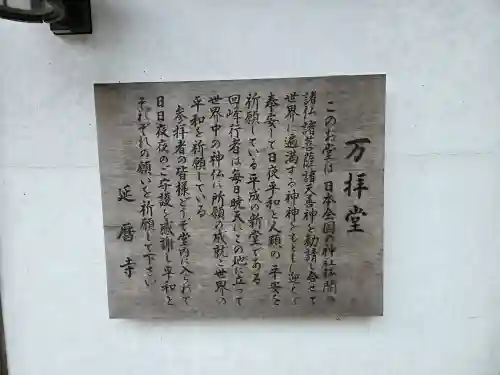 万拝堂
このお堂は日本全国の神社仏閣の
諸仏諸菩薩諸天善神を勧請し奉せて
世界に遍満する神神をもともに迎えて
奉安して日夜平和と人類の平安を
祈願している平成の新堂である
回峰行者は毎日暁天にこの地に立って
世界中の神仏に所願の成就と世界の
平和を祈願している
参拝者の皆様どうぞ堂内に入られて
日日夜夜のご守護を感謝し平和と
それぞれの願いを祈願して下さい
延暦寺